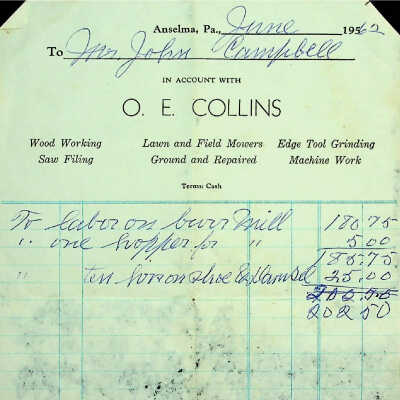 Anselma, Pa., June 195 62
To Mr John Campbell
IN ACCOUNT WITH
O. E. COLLINS
Wood Working Lawn and Field Mowers Edge Tool Grinding
Saw Filing Ground and Repaired Machine Work
Terms: Cash
To labor on burr Mill 180.75
" one hopper for " 5.00
185.75
" ten 25.00
202.50